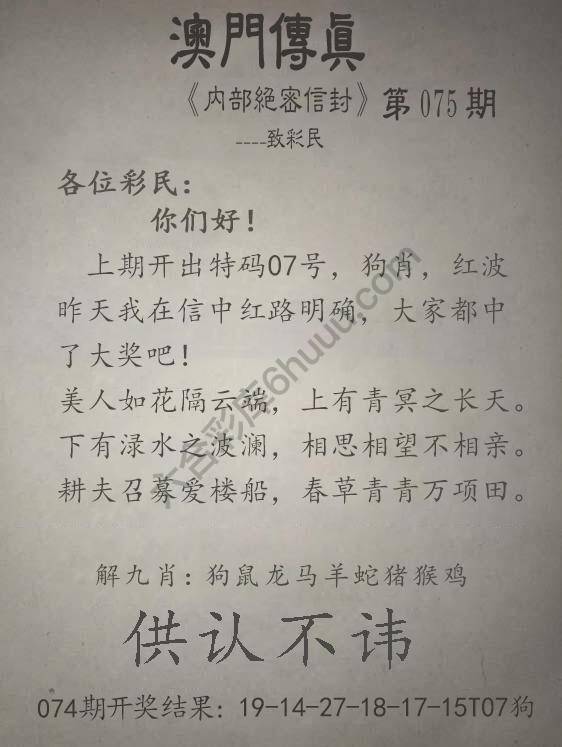 澳門傳眞
《内部絕密信封》第075期
----致彩民
各位彩民：
你们好！
上期开出特码07号，狗肖，红波
昨天我在信中红路明确，大家都中
了大奖吧！
美人如花隔云端，上有青冥之长天。
下有渌水之波澜，相思相望不相亲。
耕夫召募爱楼船，春草青青万项田。
解九肖：狗鼠龙马羊蛇猪猴鸡
供认不讳
074期开奖结果：19-14-27-18-17-15T07狗
六合彩库6huuu.com